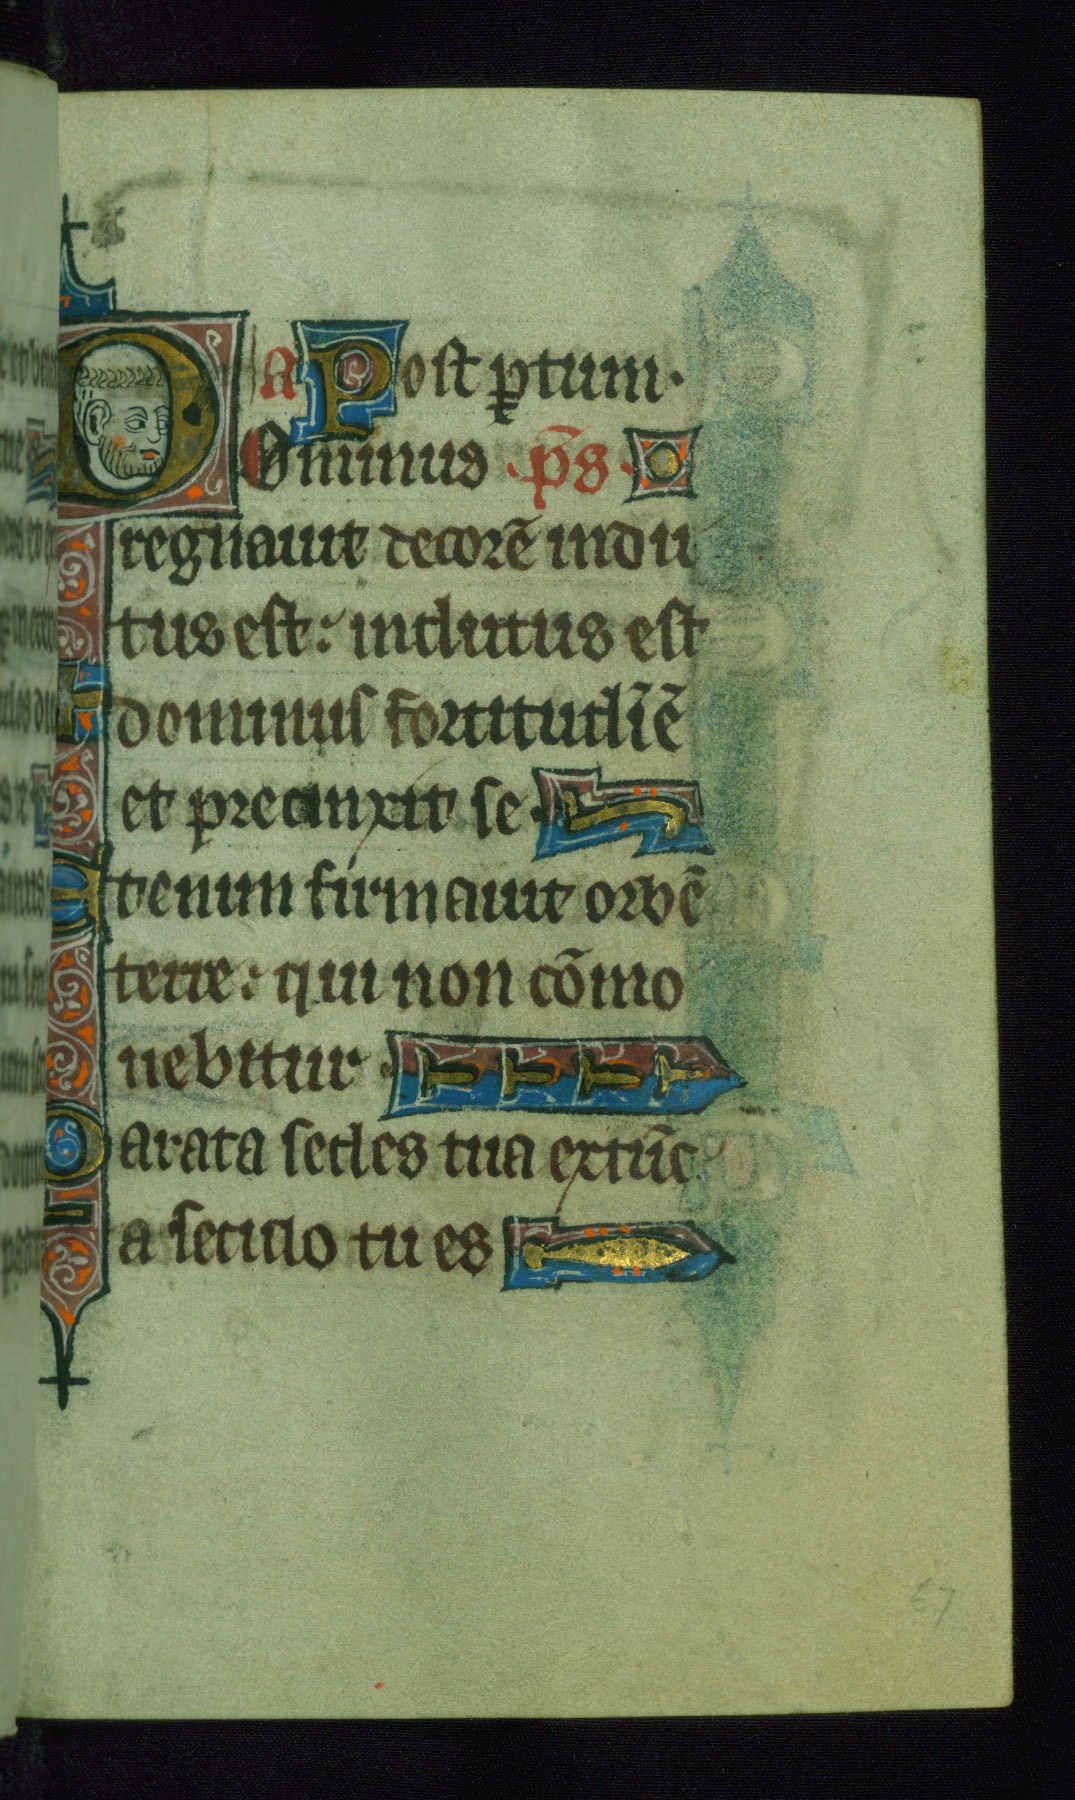 D a Post ꝑtum·
Ominus ·p̄s·
regnauit decorē indu
tus est: indutus est
dominus fortitudīē
et precinxit se·
Etenim firmauit orbē
terre: qui non cōmo
uebitur·
Parata sedes tua extūc
a seculo tu es
67